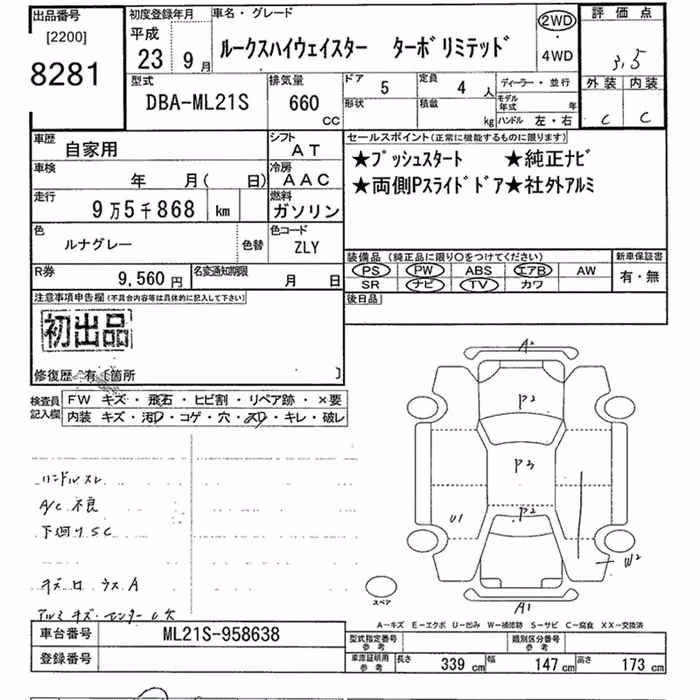 出品番号
[2200]
8281
初度登録年月
平成
23 9月
車名・グレード
ルークスハイウェイスター ターボリミテッド
2WD
・
4WD
評価点
3.5
外装 内装
C C
型式
DBA-ML21S
排気量
660
CC
ドア 5
形状
定員 4 人
積載 kg
ディーラー・並行
モデル年式 年
ハンドル 左・右
車歴
自家用
シフト
AT
車検
年 月( 日)
冷房
AAC
走行
9万5千868 km
燃料
ガソリン
色
ルナグレー
色替
色コード
ZLY
R券
9,560 円
名変通知期限
月 日
セールスポイント(正常に機能するものに限ります)
★プッシュスタート ★純正ナビ
★両側Pスライドドア★社外アルミ
装備品 (純正品に限り○をつけてください)
PS PW ABS エアB AW
SR ナビ TV カワ
新車保証書
有・無
後日品
注意事項申告欄(不具合内容等は具体的に記入して下さい)
初出品
修復歴 有[箇所 ]
検査員
記入欄
FW キズ・飛石・ヒビ割・リペア跡・×要
内装 キズ・汚レ・コゲ・穴・スレ・キレ・破レ
ハンドルスレ
A/C 不良
下廻りSC
A2
P3
P3
P2
U1
W2
A1
スペア
A−キズ E−エクボ U−凹み W−補修跡 S−サビ C−腐食 XX−交換済
車台番号 ML21S-958638
登録番号
型式指定番号
参考
類別区分番号
参考
車庫証明用
参考
長さ 339 cm 幅 147 cm 高さ 173 cm